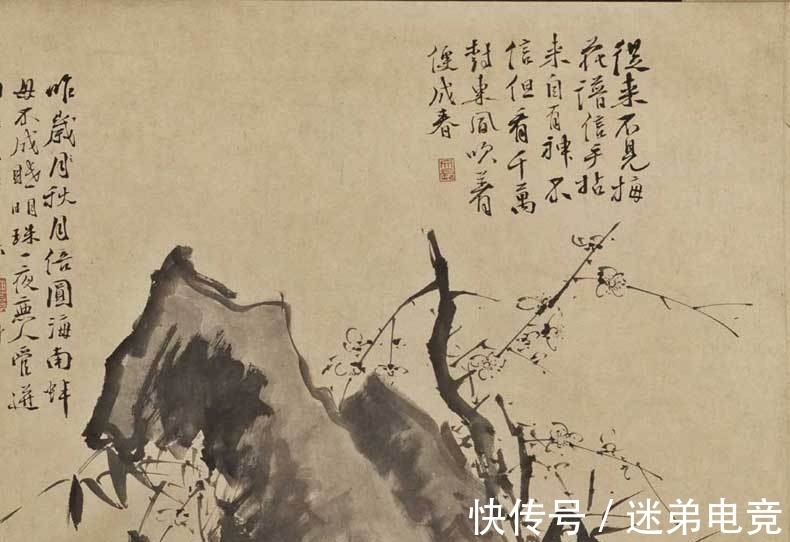 從来不見梅
花譜信手拈
来自有神不
信但看千萬
樹東風吹着
便成春
昨歲中秋月倍圓海南蚌
母不成眠明珠一夜無人管迸
快传号 / 迷弟电竞